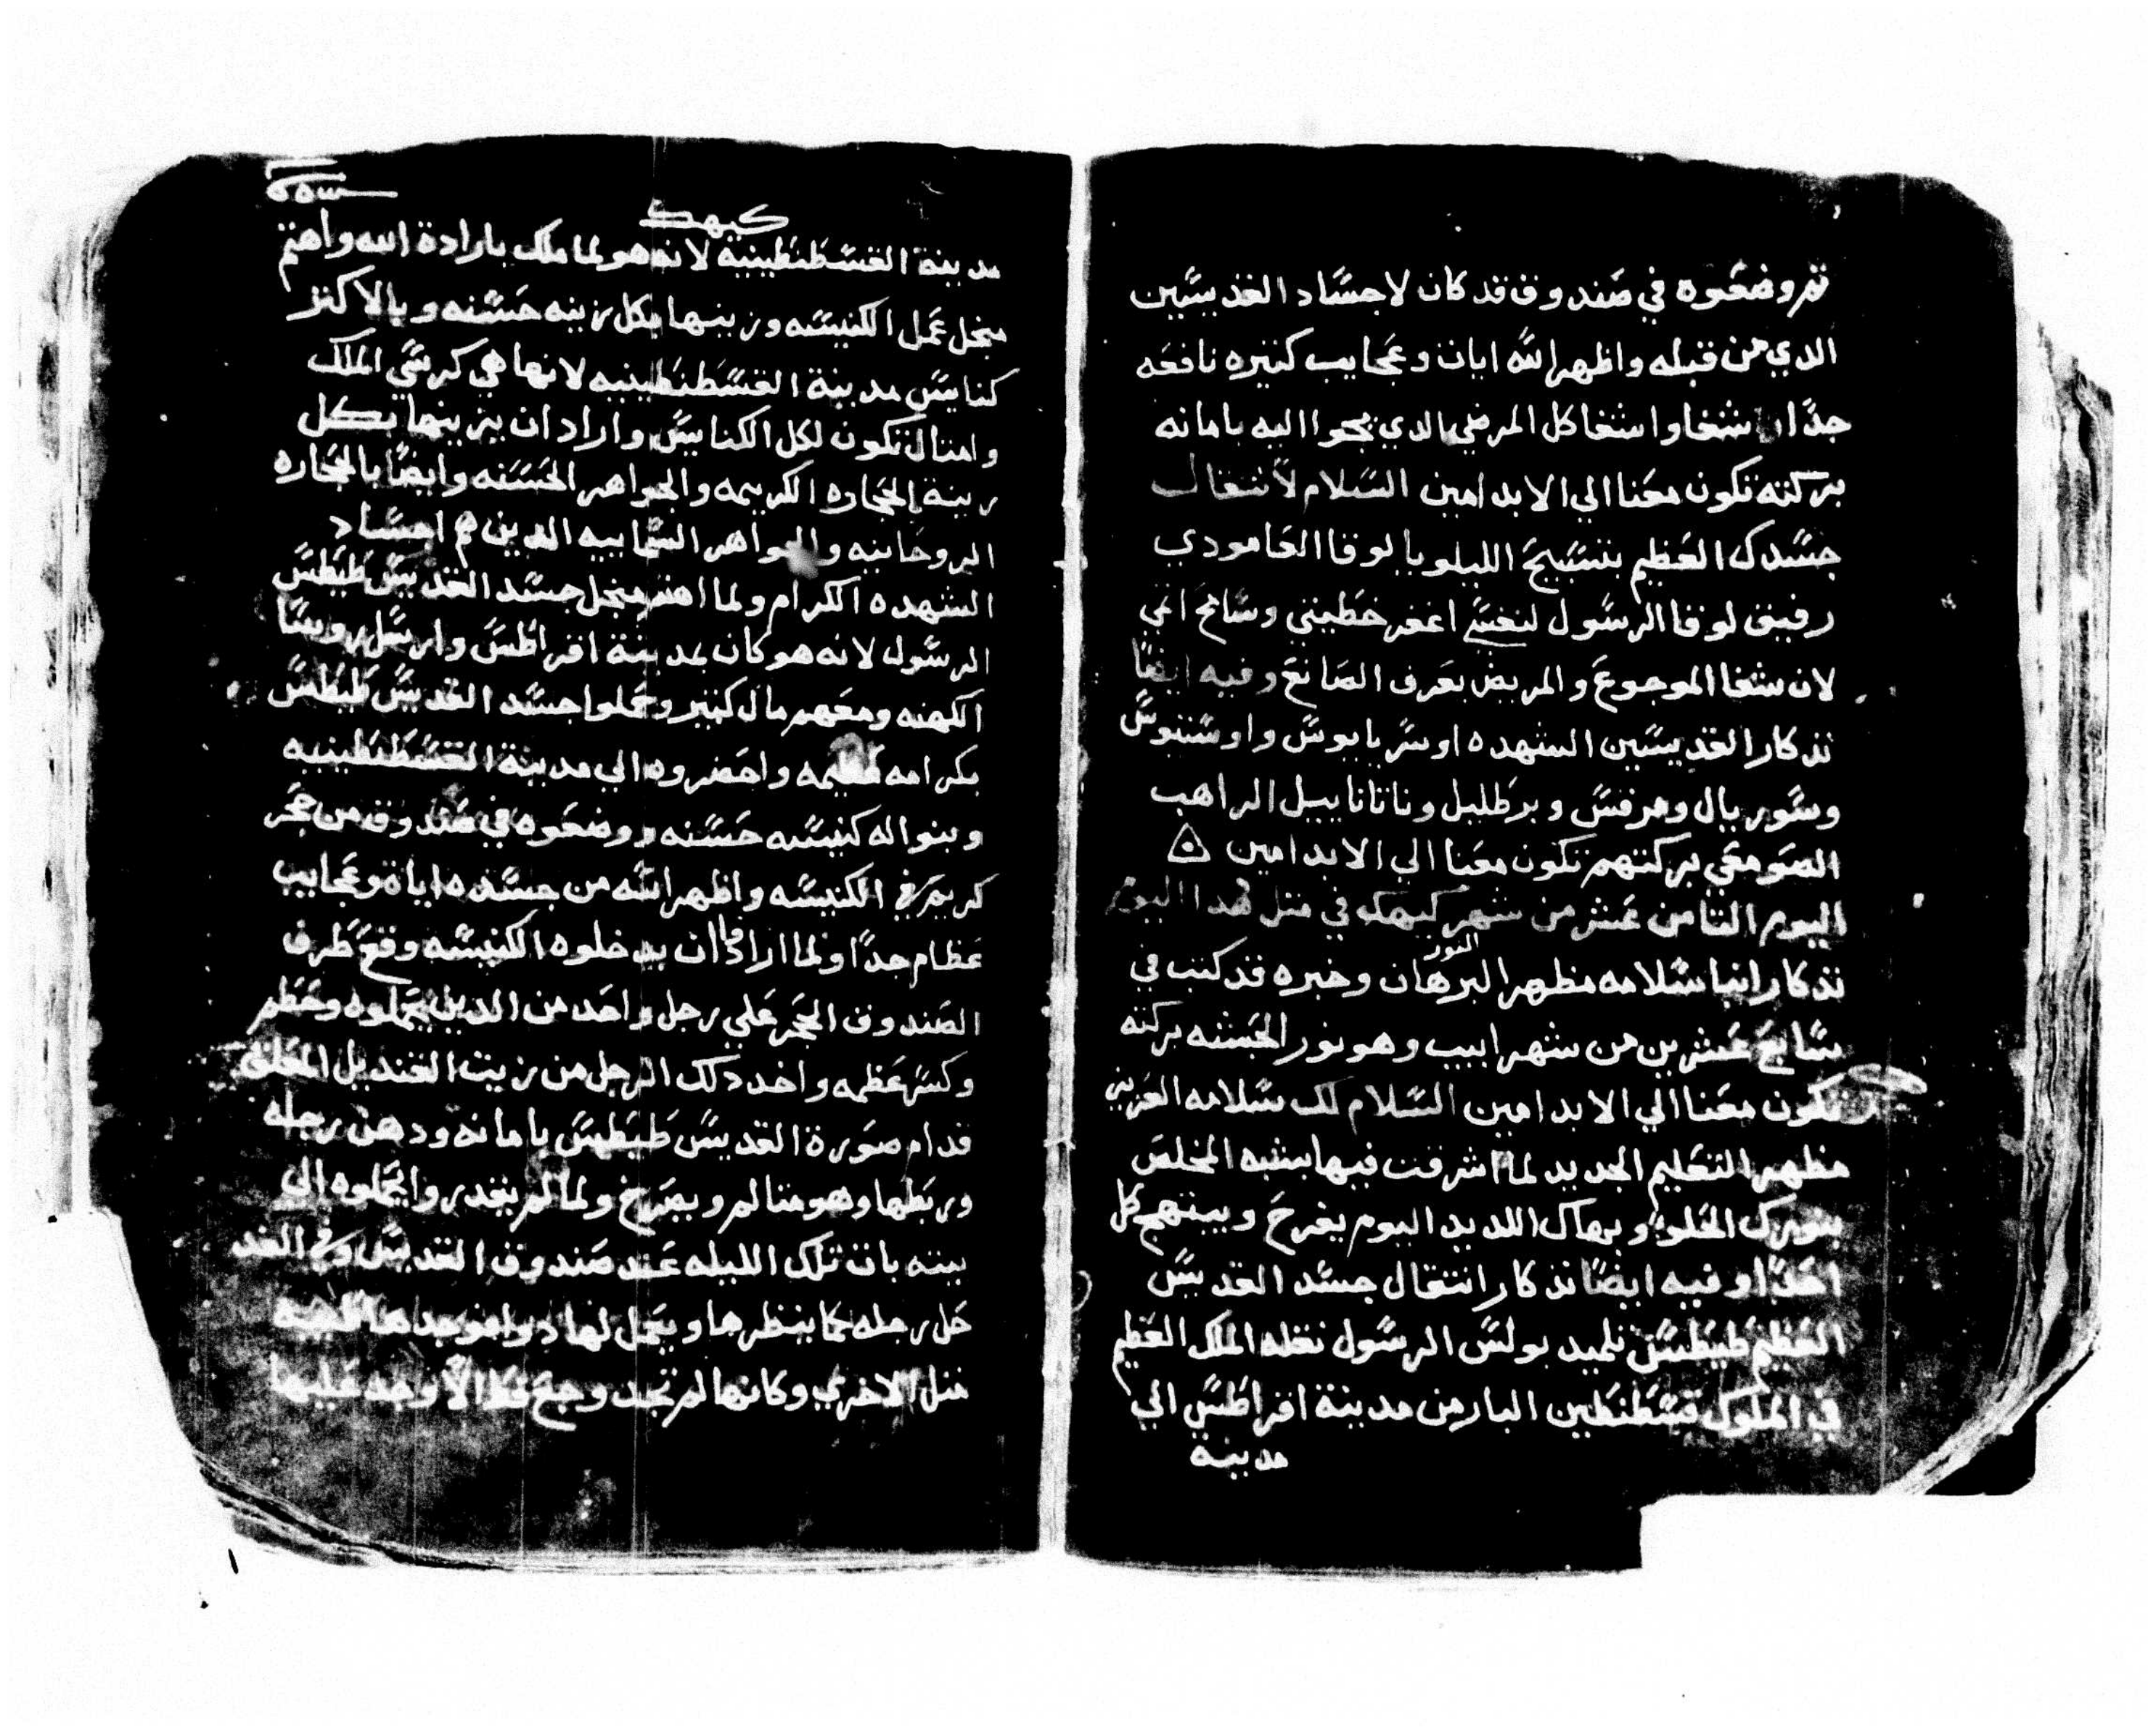 ثم وضعوه في صندوق قد كان لاجساد القديسين
الدي من قبله واظهر الله ايات وعجايب كثيره نافعه
جدًا شفا واشفا كل المرضي الدي يجوا اليه بامانه
بركته تكون معنا الي الابد امين السلام لانتقال
جسدك العظيم بتسبيح الليلويا لوقا العامودي
رفيق لوقا الرسول لنفسي اغفر خطيتي وسامح اثمي
لان شفا الموجوع والمريض يعرف الصانع وفيه ايضًا
تذكار القديسين الشهده اوسريابوس واوسنيوس
وسوريال ومرقس وبرطليل وناتانابيل الراهب
الصومعي بركتهم تكون معنا الي الابد امين
اليوم الثامن عشر من شهر كيهك في مثل هدا اليوم
النور
تذكار انبا سلامه مظهر البرهان وخبره قد كتب في
سابع عشرين من شهر ابيب وهو نور الحبشه بركته
تكون معنا الي الابد امين السلام لك سلامه العزيز
مظهر التعليم الجديد لما اشرقت فيها بشبه المخلص
بنورك الحلو وبهاك اللديد اليوم يفرح ويبتهج كل
احدًا وفيه ايضًا تذكار انتقال جسد القديس
العظيم طيطس تلميد بولس الرسول نقله الملك العظيم
في الملوك قسطنطين البار من مدينة اقراطس الي
مدينة
كيهك
مدينة القسطنطينيه لانه هو لما ملك بارادة الله واهتم
منجل عمل الكنيسه وزينها بكل زينه حسنه وبالاكثر
كنايس مدينة القسطنطينيه لانها هي كرسي الملك
وامثال تكون لكل الكنايس واراد ان يزينها بكل
زينة الحجاره الكريمه والجواهر الحسنه وايضًا بالحجاره
الروحانيه والجواهر السماييه الدين هم اجساد
الشهده الكرام ولما اهتم منجل جسد القديس طيطس
الرسول لانه هو كان بمدينة اقراطس وارسل روسا
الكهنه ومعهم مال كثير وحملوا جسد القديس طيطس
بكرامه عظيمه واحضروه الي مدينة القسطنطينيه
وبنوا له كنيسه حسنه ووضعوه في صندوق من حجر
كريم في الكنيسه واظهر الله من جسده اياة وعجايب
عظام جدًا ولما ارادوا ان يدخلوه الكنيسه وقع طرف
الصندوق الحجر علي رجل واحد من الدين يحملوه وحطم
وكسر عظمه واخد دلك الرجل من زيت القنديل المعلق
قدام صورة القديس طيطس بامانه ودهن رجله
وربطها وهو متالم ويصرخ ولما لم يقدروا يحملوه الي
بيته بات تلك الليله عند صندوق القديس وفي الغد
حل رجله كما ينظرها ويعمل لها دوا فوجدها
مثل الاخري وكانها لم تجد وجع قط الا وجد عليها